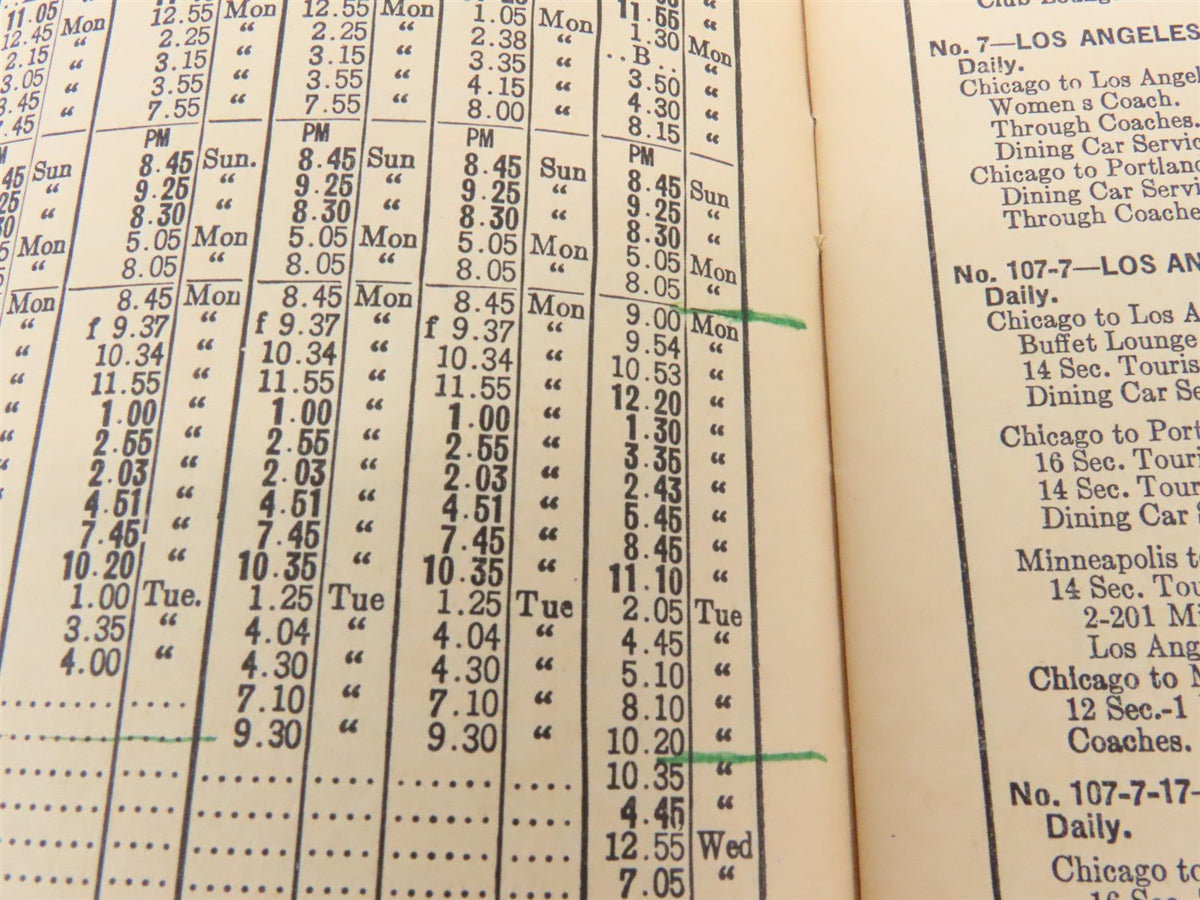 11.05 12.55 Mon 12.55 Mon 1.05 Mon 11.55
12.45 Mon 2.25 “ 2.25 “ 2.38 “ 1.30 Mon
2.15 “ 3.15 “ 3.15 “ 3.35 “ ..B.. “
3.05 “ 3.55 “ 3.55 “ 4.15 “ 3.50 “
3.45 “ 7.55 “ 7.55 “ 8.00 “ 4.30 “
.45 “ 8.15 “
PM PM PM PM
45 Sun 8.45 Sun. 8.45 Sun 8.45 Sun 8.45 Sun
25 “ 9.25 “ 9.25 “ 9.25 “ 9.25 “
30 “ 8.30 “ 8.30 “ 8.30 “ 8.30 “
5 Mon 5.05 Mon 5.05 Mon 5.05 Mon 5.05 Mon
“ 8.05 “ 8.05 “ 8.05 “ 8.05 “
Mon 8.45 Mon 8.45 Mon 8.45 Mon 9.00 Mon
“ f 9.37 “ f 9.37 “ f 9.37 “ 9.54 “
“ 10.34 “ 10.34 “ 10.34 “ 10.53 “
“ 11.55 “ 11.55 “ 11.55 “ 12.20 “
“ 1.00 “ 1.00 “ 1.00 “ 1.30 “
“ 2.55 “ 2.55 “ 2.55 “ 3.35 “
“ 2.03 “ 2.03 “ 2.03 “ 2.43 “
4.51 “ 4.51 “ 4.51 “ 5.45 “
7.45 “ 7.45 “ 7.45 “ 8.45 “
10.20 “ 10.35 “ 10.35 “ 11.10 “
1.00 Tue. 1.25 Tue 1.25 Tue 2.05 Tue
3.35 “ 4.04 “ 4.04 “ 4.45 “
4.00 “ 4.30 “ 4.30 “ 5.10 “
........ .... 7.10 “ 7.10 “ 8.10 “
........ .... 9.30 “ 9.30 “ 10.20 “
........ .... ........ .... ........ .... 10.35 “
........ .... ........ .... ........ .... 4.45 “
........ .... ........ .... ........ .... 12.55 Wed
........ .... ........ .... ........ .... 7.05 “
No. 7—LOS ANGELES
Daily.
Chicago to Los Angel
Women s Coach.
Through Coaches.
Dining Car Servic
Chicago to Portland
Dining Car Servi
Through Coache
No. 107-7—LOS AN
Daily.
Chicago to Los A
Buffet Lounge
14 Sec. Touris
Dining Car Se
Chicago to Port
16 Sec. Touri
14 Sec. Tour
Dining Car S
Minneapolis to
14 Sec. Tou
2-201 Mi
Los Ang
Chicago to M
12 Sec.-1
Coaches.
No. 107-7-17-
Daily.
Chicago to